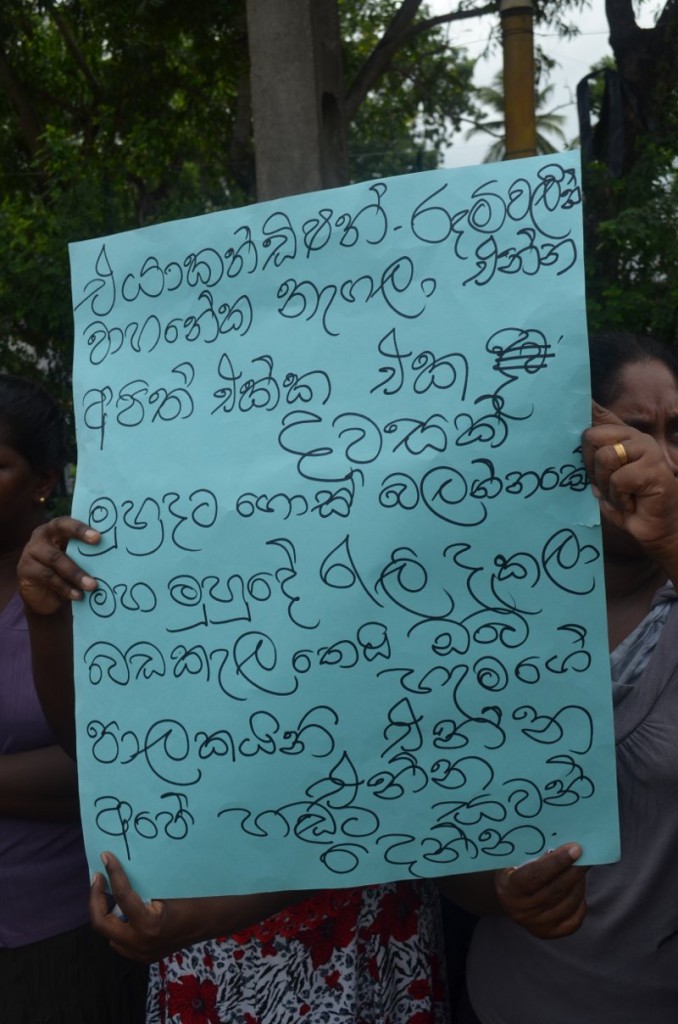 එයාකන්ඩිෂන්. රූම්වළින්
වාහනේක නැගල, එන්න
අපිත් එක්ක එක
දවසක්
මුහුදට ගොස් බලගන්නකෝ
මහ මුහුදේ රැලි දැකලා
බඩකැලතෙයි ඔබේ
හැමගේ
පාලකයිනි එන්න
එන්න
අපේ හඬට සවන්
දෙන්න.